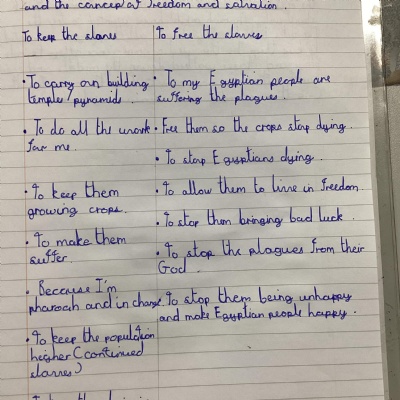 and the concept of freedom and salvation.
To keep the slaves
To free the slaves
• To carry on building
temple/pyramids.
• To do all the work
for me.
• To keep them
growing crops.
• To make them
suffer.
• Because I'm
pharoah and in charge.
• To keep the population
higher (continued
slaves)
• To my Egyptian people are
suffering the plagues.
• Free them so the crops stop dying.
• To stop Egyptians dying.
• To allow them to live in freedom.
• To stop them bringing bad luck.
• To stop the plagues from their
God.
• To stop them being unhappy
and make Egyptian people happy.